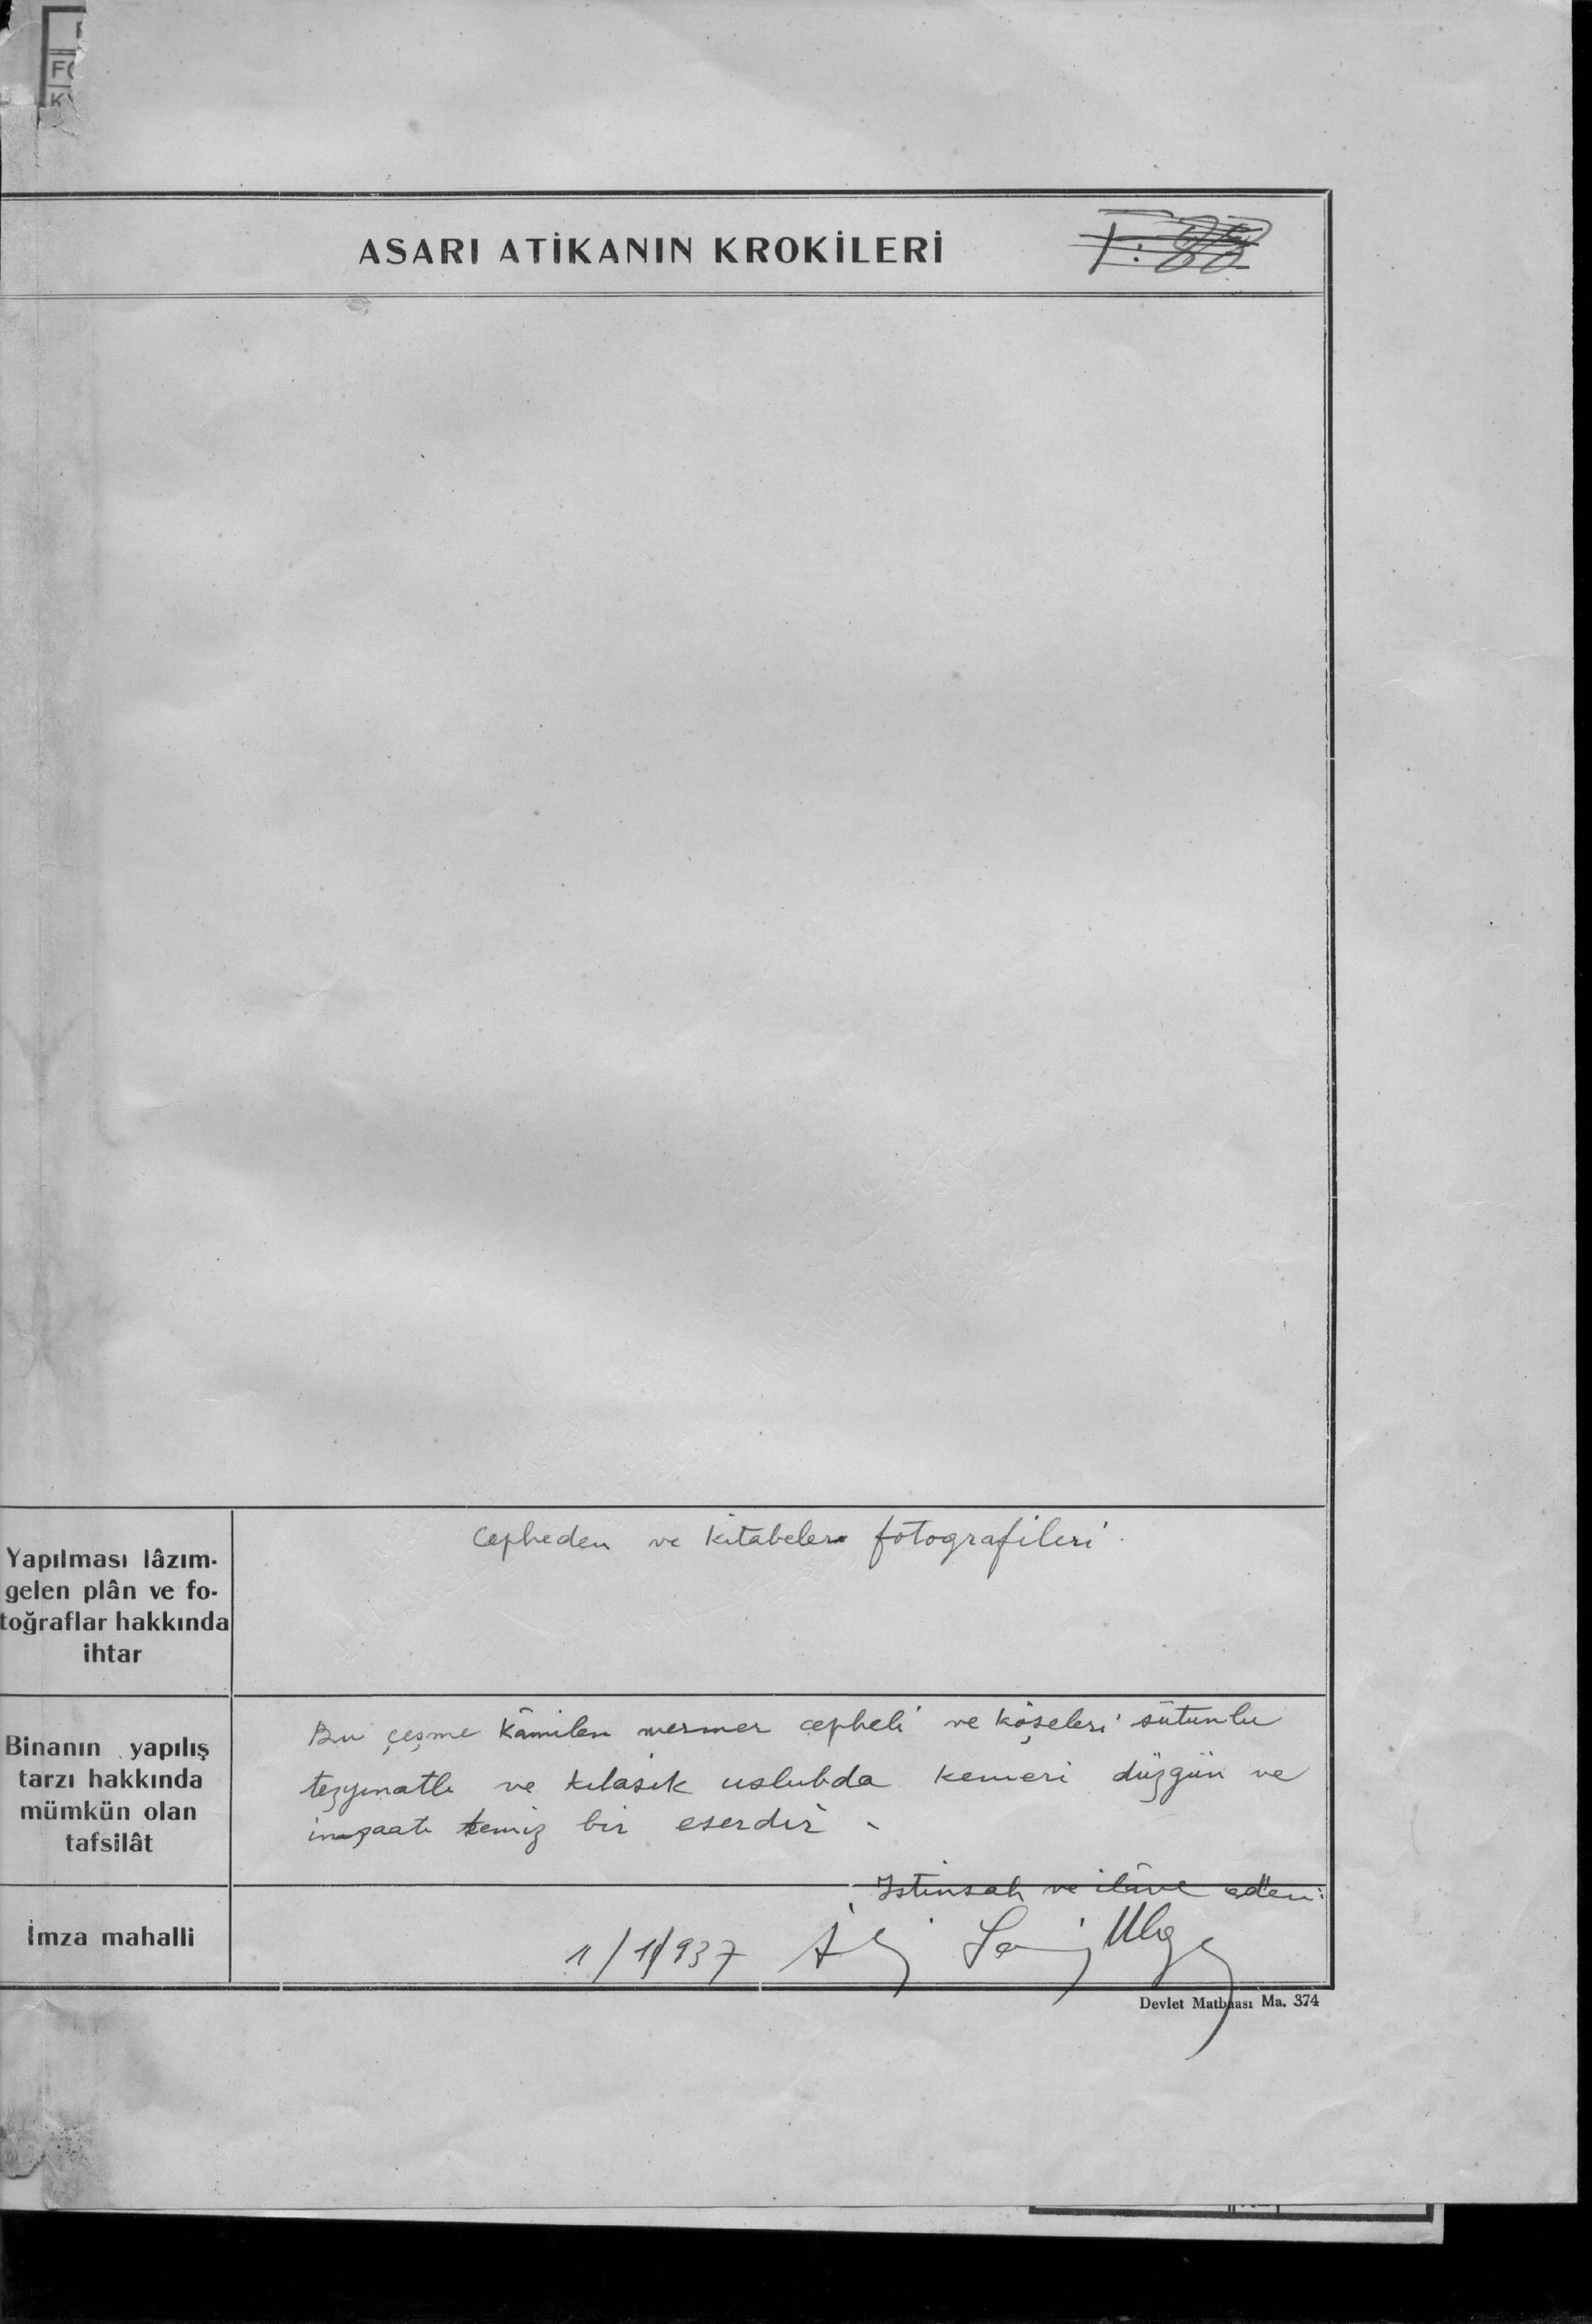 ASARI ATİKANIN KROKİLERİ
Yapılması lâzım-
gelen plân ve fo-
toğraflar hakkında
ihtar
Cepheden ve kitabeler fotografileri.
Binanın yapılış
tarzı hakkında
mümkün olan
tafsilât
Bu çeşme kâmilen mermer cepheli ve köşeleri sütunlu
tezyinatlı ve kılasik uslubda kemeri düzgün ve
inşaatı temiz bir eserdir.
İstinsah ve ilâve eden:
İmza mahalli
1/1/937 Ali Saim Ülgen
Devlet Matbaası Ma. 374